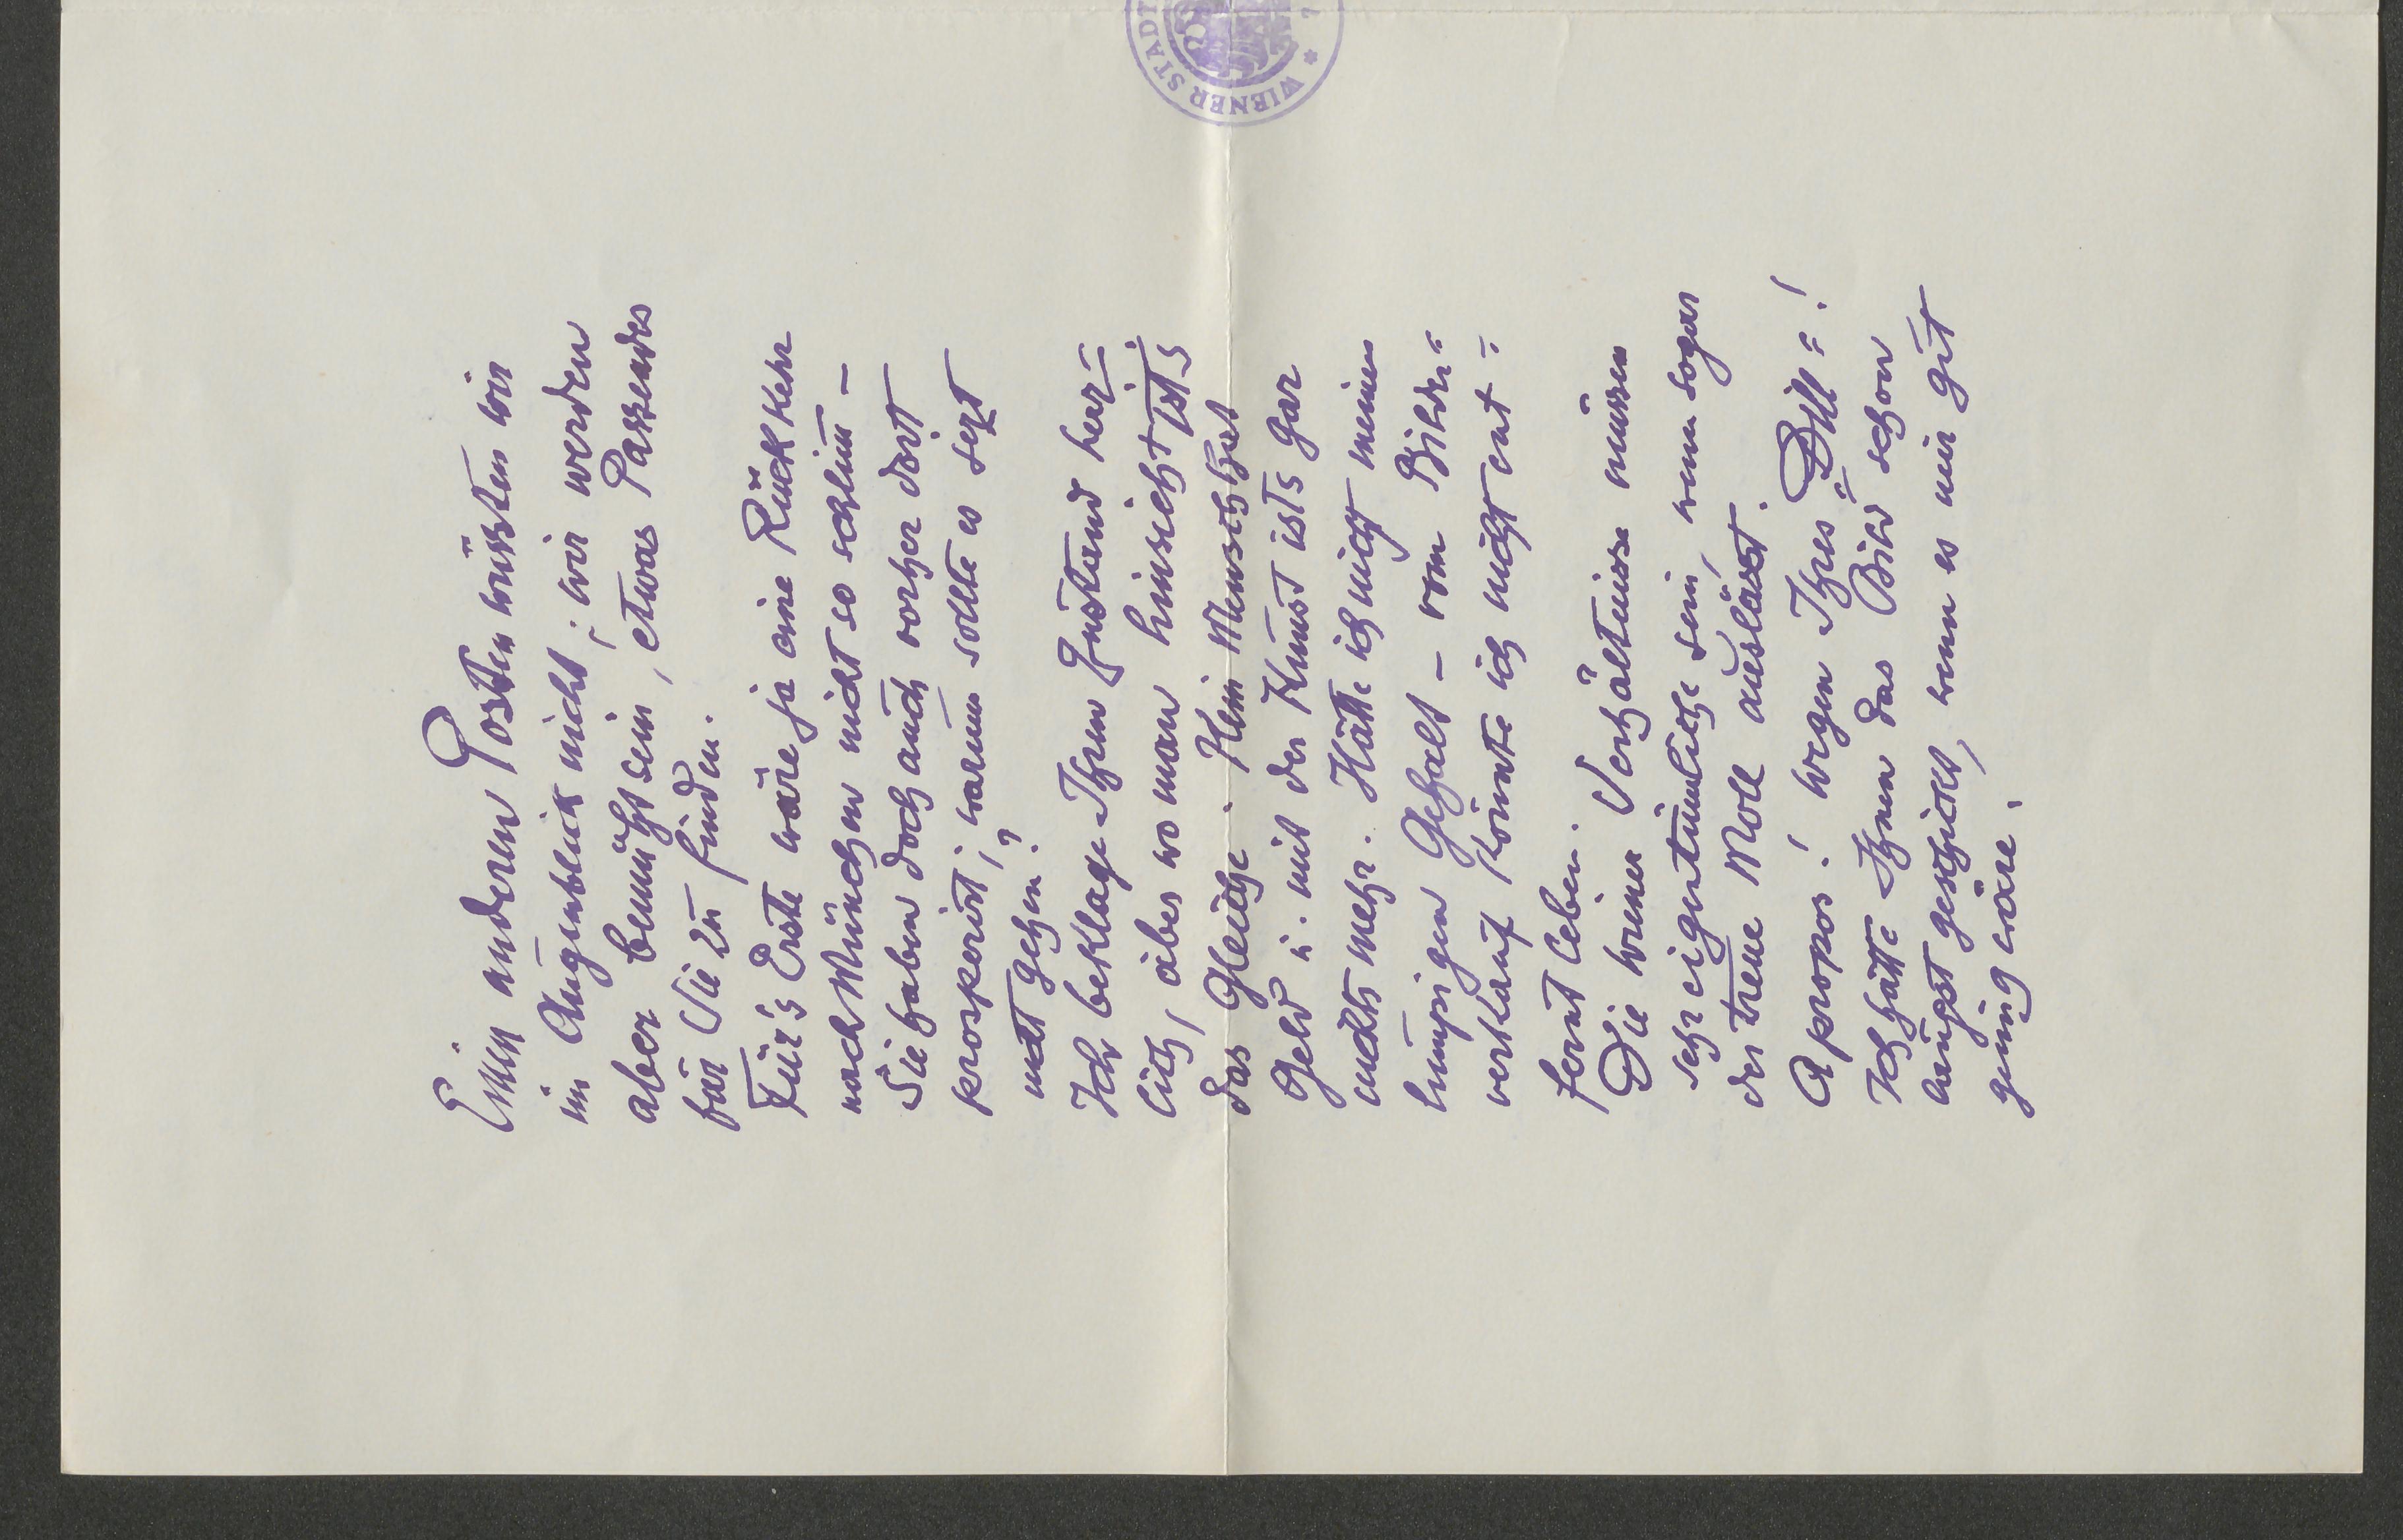 Einen anderen Posten wüssten wir
im Augenblick nicht; wir werden
aber bemüht sein, etwas Passendes
für Sie zu finden.
Für's Erste wäre ja eine Rückkehr
nach München nicht so schlimm –
Sie haben doch auch vorher dort
prosperirt; warum sollte es jezt
nicht gehen?
Ich beklage Ihren Zustand herz=
lich, aber wo man hinsieht ists
das Gleiche. Kein Mensch hat
Geld u. mit der Kunst ists gar
nichts mehr. Hätte ich nicht meinen
lumpigen Gehalt – vom Bilder=
verkauf könnte ich nicht ent=
fernt leben.
Die Wiener Verhältnisse müssen
sehr eigentümliche sein, wenn sogar
der treue Moll auslässt.
Apropos! wegen Ihres "Dill"!
Ich hätte Ihnen das Bild schon
längst geschickt, wenn es mir gut
genug wäre.
WIENER STADT